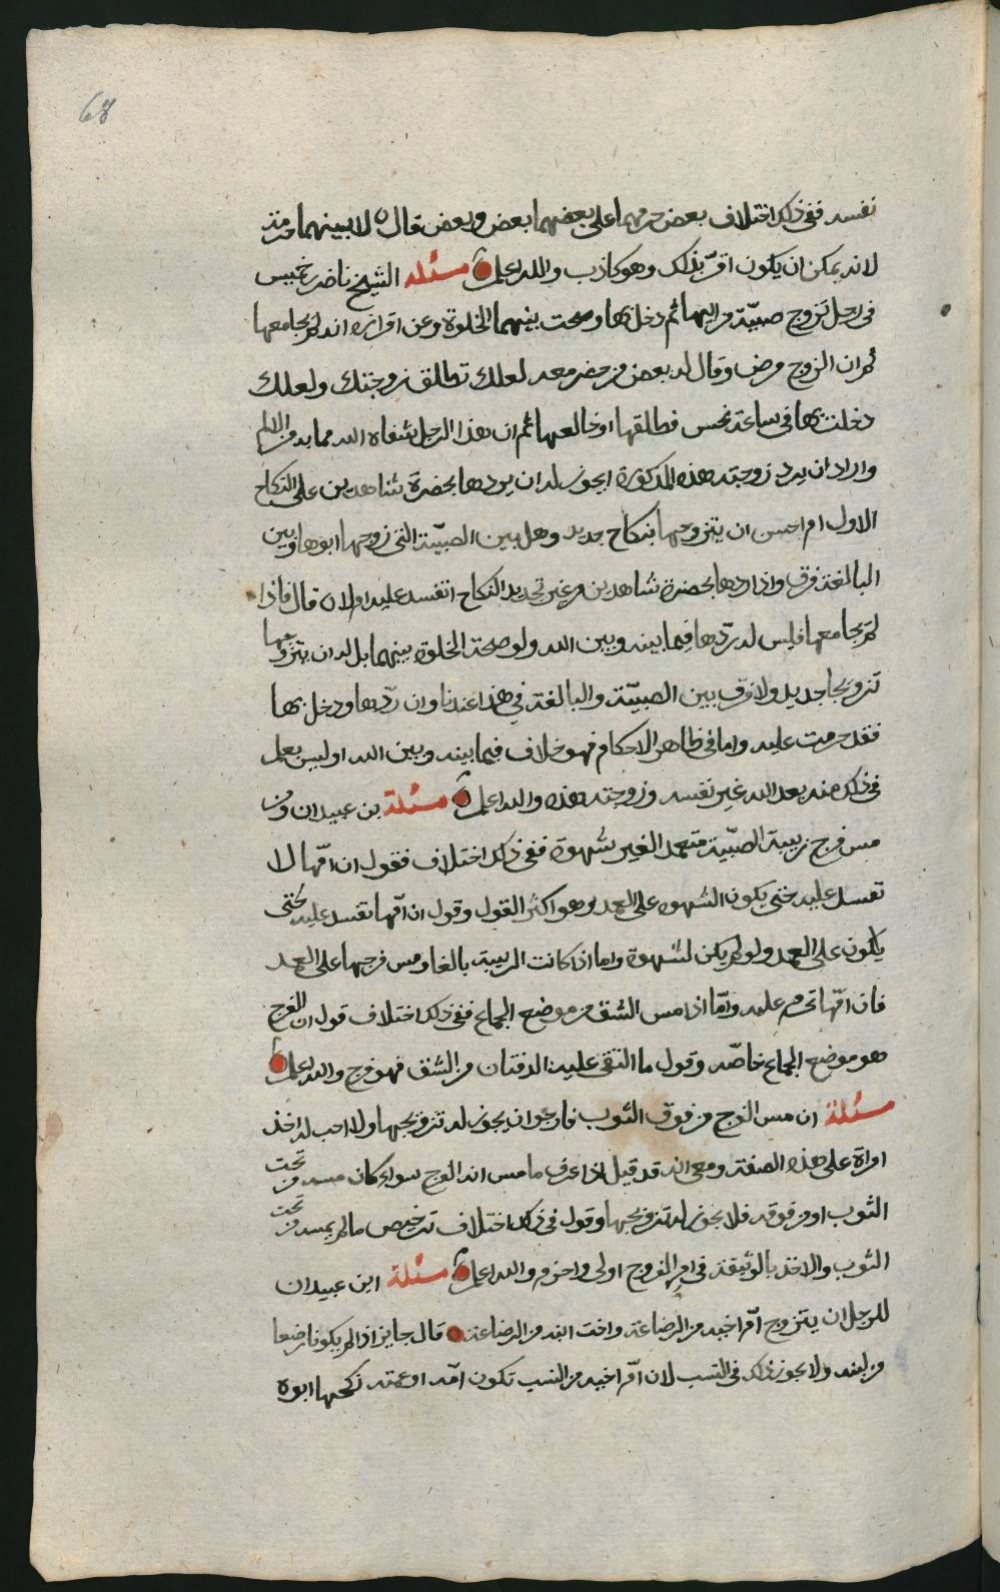 68
نفسه ففي ذلك اختلاف بعض حرمهما على بعضهما بعض وبعض قال لا يبينهما
لانه يمكن ان يكون اقرّ بذلك وهو كاذب والله اعلم مسئلة الشيخ ناصر بن خميس
في رجل تزوج صبيّة من ابيها ثم دخل بها وصحت بينهما الخلوة وعن اقراره انه لم يجامعها
ثم ان الزوج مرض وقال له بعض من حضر معه لعلك تطلق زوجتك ولعلك
دخلت بها في ساعة نحس فطلقها او خالعها ثم ان هذا الرجل شفاه الله مما به من الالم
واراد ان يرد زوجته هذه المذكورة ايجوز له ان يردها بحضرة شاهدين على النكاح
الاول ام احسن ان يتزوجها بنكاح جديد وهل بين الصبيّة التي زوجها ابوها وبين
البالغة فرق واذا ردها بحضرة شاهدين من غير تجديد النكاح اتفسد عليه ام لا قال فاذا
لم يجامعها فليس له ردّها فيما بينه وبين الله ولو صحت الخلوة بينهما بل له ان يتزوجها
تزويجا جديد ولا فرق بين الصبيّة والبالغة في هذا عندنا وان ردّها ودخل بها
فقد حرمت عليه واما في ظاهر الاحكام فهو خلاف فيما بينه وبين الله اوليس يعلم
في ذلك منه بعد الله غير نفسه وزوجته هذه والله اعلم مسئلة بن عبيدان ومن
مس فرج ربيبة الصبيّة متعمد الغير شهوة ففي ذلك اختلاف فقول ان امّها لا
تفسد عليه حتى يكون الشهوه على العمد وهو اكثر القول وقول ان امّها تفسد عليه حتى
يكون على العمد ولو لم يكن لشهوة واما اذا كانت الربيبة بالغا ومس فرجها على العمد
فان امّها تحرم عليه وامّا اذا مس الشق من موضع الجماع ففي ذلك اختلاف قول ان الفرج
هو موضع الجماع خاصّه وقول ما التقى عليه الدفتان من الشق فهو فرج والله اعلم
مسئلة ان مس الفرج من فوق الثوب فارجو ان يجوز له تزويجها ولا احب له اخذ
امراة على هذه الصفة ومعي انه قد قيل اذا عرف ما مس انه الفرج سواء كان مسه من تحت
الثوب او من فوقه فلا يجوز له تزويجها وقول في ذلك اختلاف ترخيص ما لم يمسه من تحت
الثوب والاخذ بالوثيقة في امر الفروج اولى واحزم والله اعلم مسئلة ابن عبيدان
للرجل ان يتزوج امّ اخيه من الرضاعة واخت ابنه من الرضاعة قال جايز اذا لم يكونا رضعا
من لبنه ولا يجوز ذلك في النسب لان امّ اخيه من النسب تكون امّه او عمته نكحها ابوه